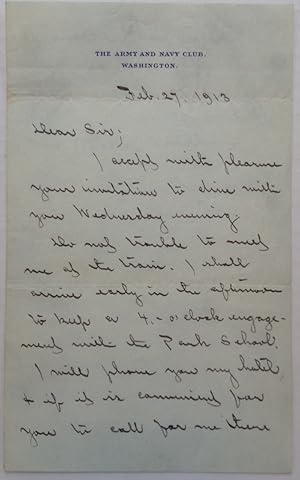 THE ARMY AND NAVY CLUB.
WASHINGTON.
Feb. 27, 1913
Dear Sir;
I accept with pleasure
your invitation to dine with
you Wednesday evening.
Do not trouble to meet
me at the train. I shall
arrive early in the afternoon
to keep a 4 - o'clock engage-
ment with the Park School.
I will phone you my hotel,
& if it is convenient for
you to call for me there